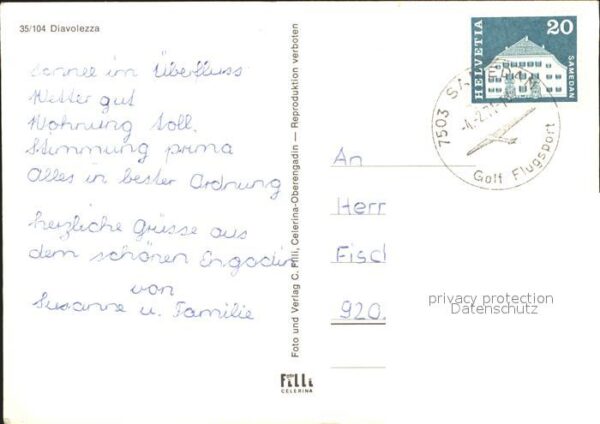 35/104 Diavolezza
Schnee im Überfluss
Wetter gut
Wohnung toll.
Stimmung prima
Alles in bester Ordnung
herzliche Grüsse aus
dem schönen Engadin
von
Susanne u. Familie
Foto und Verlag C. Filli, Celerina-Oberengadin — Reproduktion verboten
Filli
CELERINA
HELVETIA
20
SAMEDAN
7503 SAMEDAN
Golf Flugsport
An
Herr
Fisc
920.
privacy protection
Datenschutz